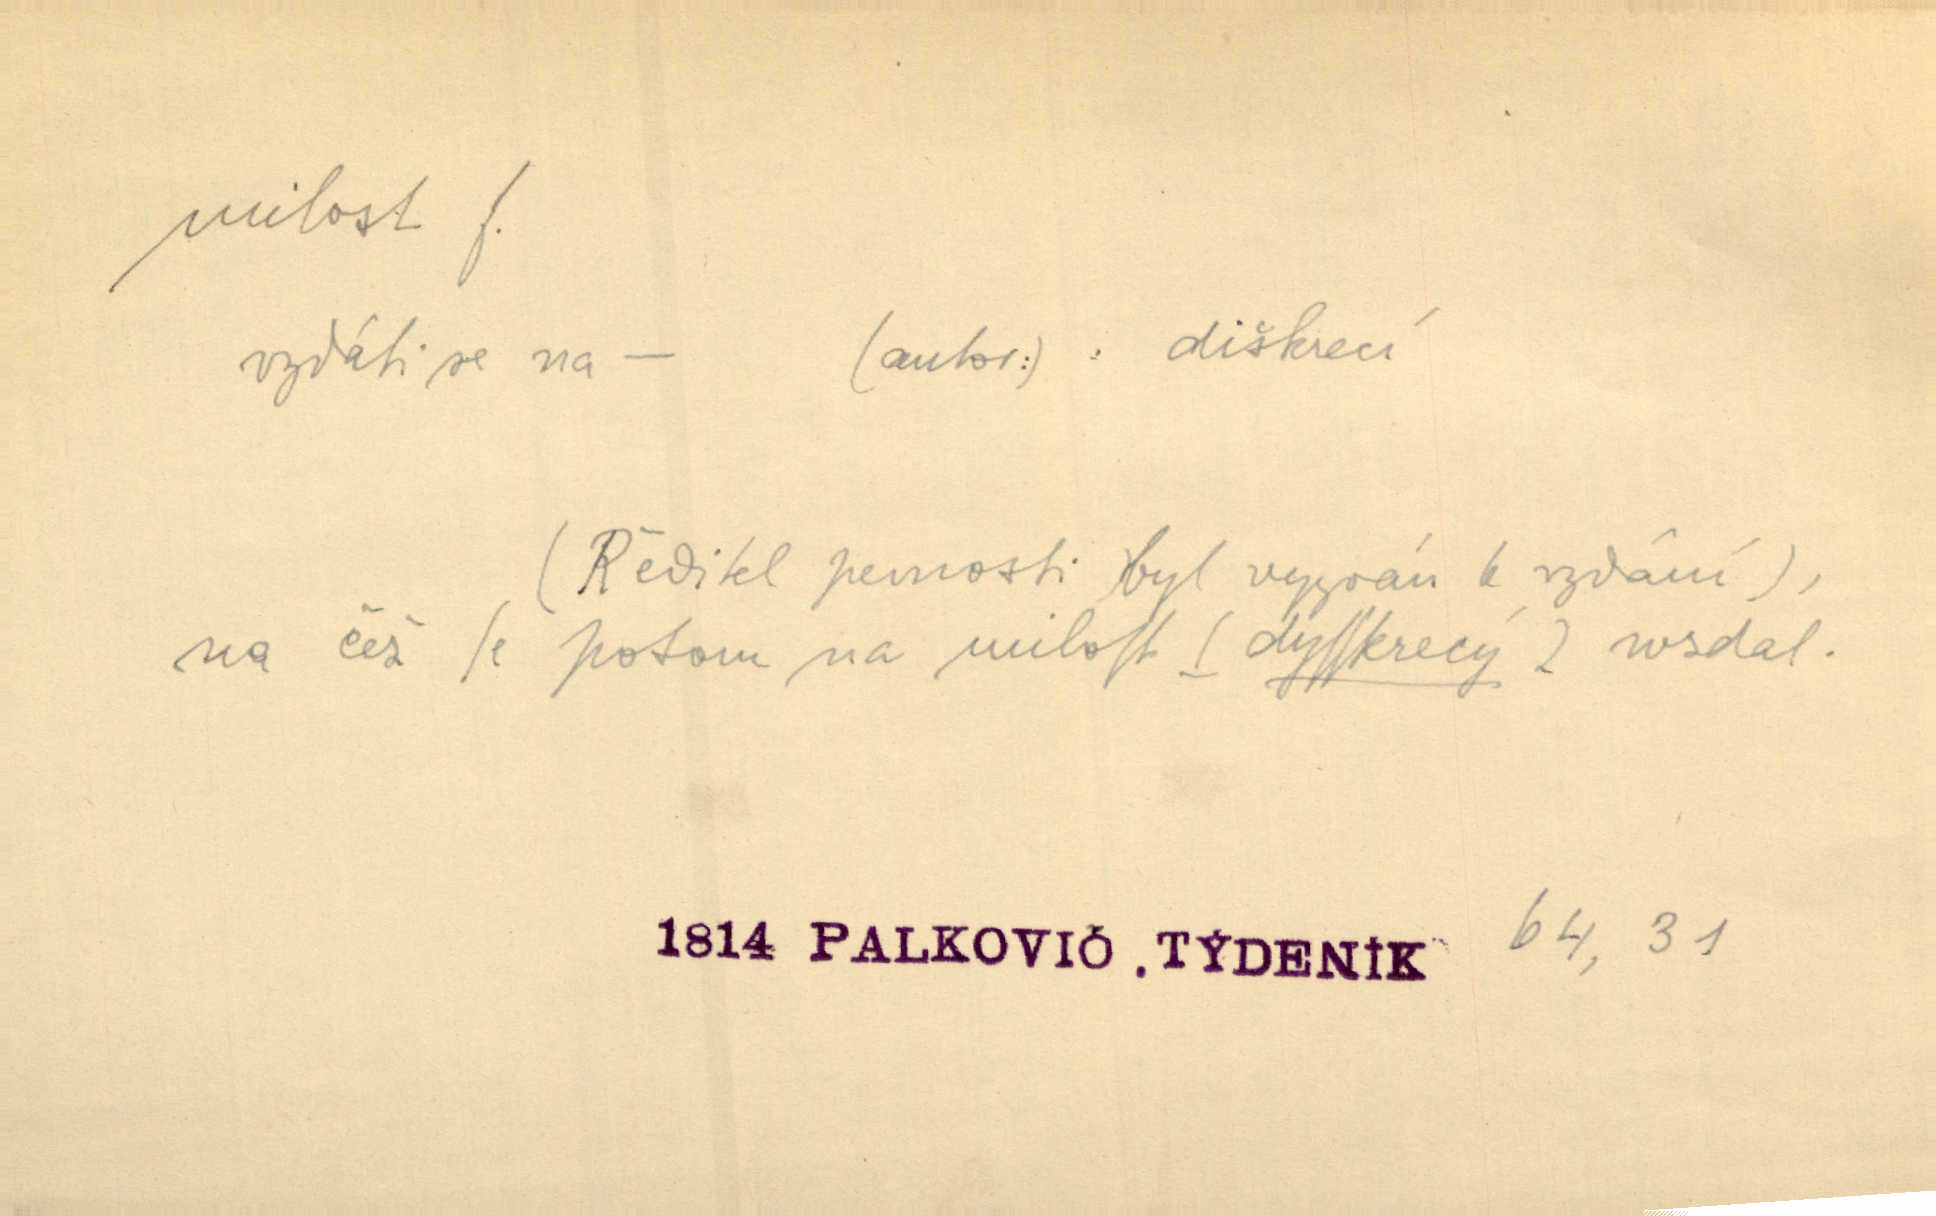 milost f.
vzdáti se na — (autor:) : diškrecí
(Ředitel pevnosti byl vyzván k vzdání),
na čež ſe potom na miloſt [dyſſkrecý] wzdal.
1814 PALKOVIČ . TÝDENÍK 64, 31